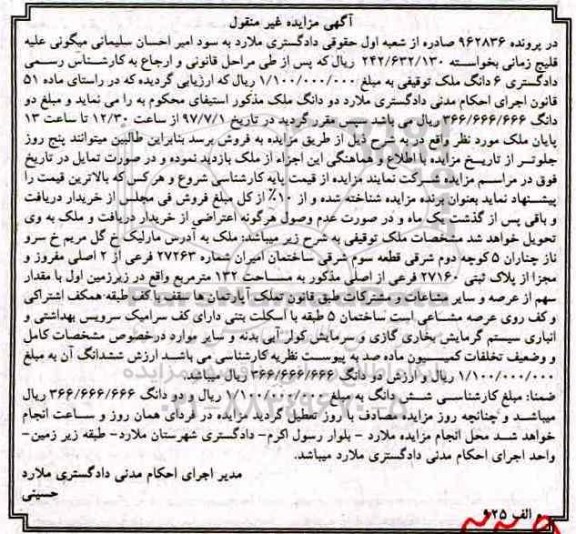 آگهی مزایده غیر منقول
در پرونده ۹۶۲۸۳۶ صادره از شعبه اول حقوقی دادگستری ملارد به سود امیر احسان سلیمانی میگونی علیه
قلیج زمانی بخواسته ۲۴۲/۶۳۲/۱۳۰ ریال که پس از طی مراحل قانونی و ارجاع به کارشناس رسمی
دادگستری ۶ دانگ ملک توقیفی به مبلغ ۱/۱۰۰/۰۰۰/۰۰۰ ریال که ارزیابی گردیده که در راستای ماده ۵۱
قانون اجرای احکام مدنی دادگستری ملارد دو دانگ ملک مذکور استیفای محکوم به را می نماید و مبلغ دو
دانگ ۳۶۶/۶۶۶/۶۶۶ ریال می باشد سپس مقرر گردید در تاریخ ۹۷/۷/۱ از ساعت ۱۲/۳۰ تا ساعت ۱۳
پایان ملک مورد نظر واقع در به شرح ذیل از طریق مزایده به فروش برسد بنابراین طالبین میتوانند پنج روز
جلوتر از تاریخ مزایده با اطلاع و هماهنگی این اجراء از ملک بازدید نموده و در صورت تمایل در تاریخ
فوق در مراسم مزایده شرکت نمایند مزایده از قیمت پایه کارشناسی شروع و هرکس که بالاترین قیمت را
پیشنهاد نماید بعنوان برنده مزایده شناخته شده و از ۱۰٪ از کل مبلغ فروش فی مجلس از خریدار دریافت
و باقی پس از گذشت یک ماه و در صورت عدم وصول هرگونه اعتراضی از خریدار دریافت و ملک به وی
تحویل خواهد شد مشخصات ملک توقیفی به شرح زیر میباشد: ملک به آدرس مارلیک خ گل مریم خ سرو
ناز چناران ۵ کوچه دوم شرقی قطعه سوم شرقی ساختمان امیران شماره ۲۷۲۶۳ فرعی از ۲ اصلی مفروز و
مجزا از پلاک ثبتی ۲۷۱۶۰ فرعی از اصلی مذکور به مساحت ۱۳۲ مترمربع واقع در زیرزمین اول با مقدار
سهم از عرصه و سایر مشاعات و مشترکات طبق قانون تملک آپارتمان ها سقف با کف طبقه همکف اشتراکی
و کف روی عرصه مشاعی است ساختمان ۵ طبقه با اسکلت بتنی دارای کف سرامیک سرویس بهداشتی و
انباری سیستم گرمایش بخاری گازی و سرمایش کولر آبی بدنه و سایر موارد درخصوص مشخصات کامل
و وضعیف تخلفات کمیسیون ماده صد به پیوست نظریه کارشناسی می باشد ارزش ششدانگ آن به مبلغ
۱/۱۰۰/۰۰۰/۰۰۰ ریال و ارزش دو دانگ ۳۶۶/۶۶۶/۶۶۶ ریال میباشد.
ضمنا: مبلغ کارشناسی شش دانگ به مبلغ ۱/۱۰۰/۰۰۰/۰۰۰ ریال و دو دانگ ۳۶۶/۶۶۶/۶۶۶ ریال
میباشد و چنانچه روز مزایده مصادف با روز تعطیل گردید مزایده در فردای همان روز و ساعت انجام
خواهد شد محل انجام مزایده ملارد - بلوار رسول اکرم- دادگستری شهرستان ملارد- طبقه زیر زمین-
واحد اجرای احکام مدنی دادگستری ملارد میباشد.
مدیر اجرای احکام مدنی دادگستری ملارد
حسینی
الف ۹۲۵